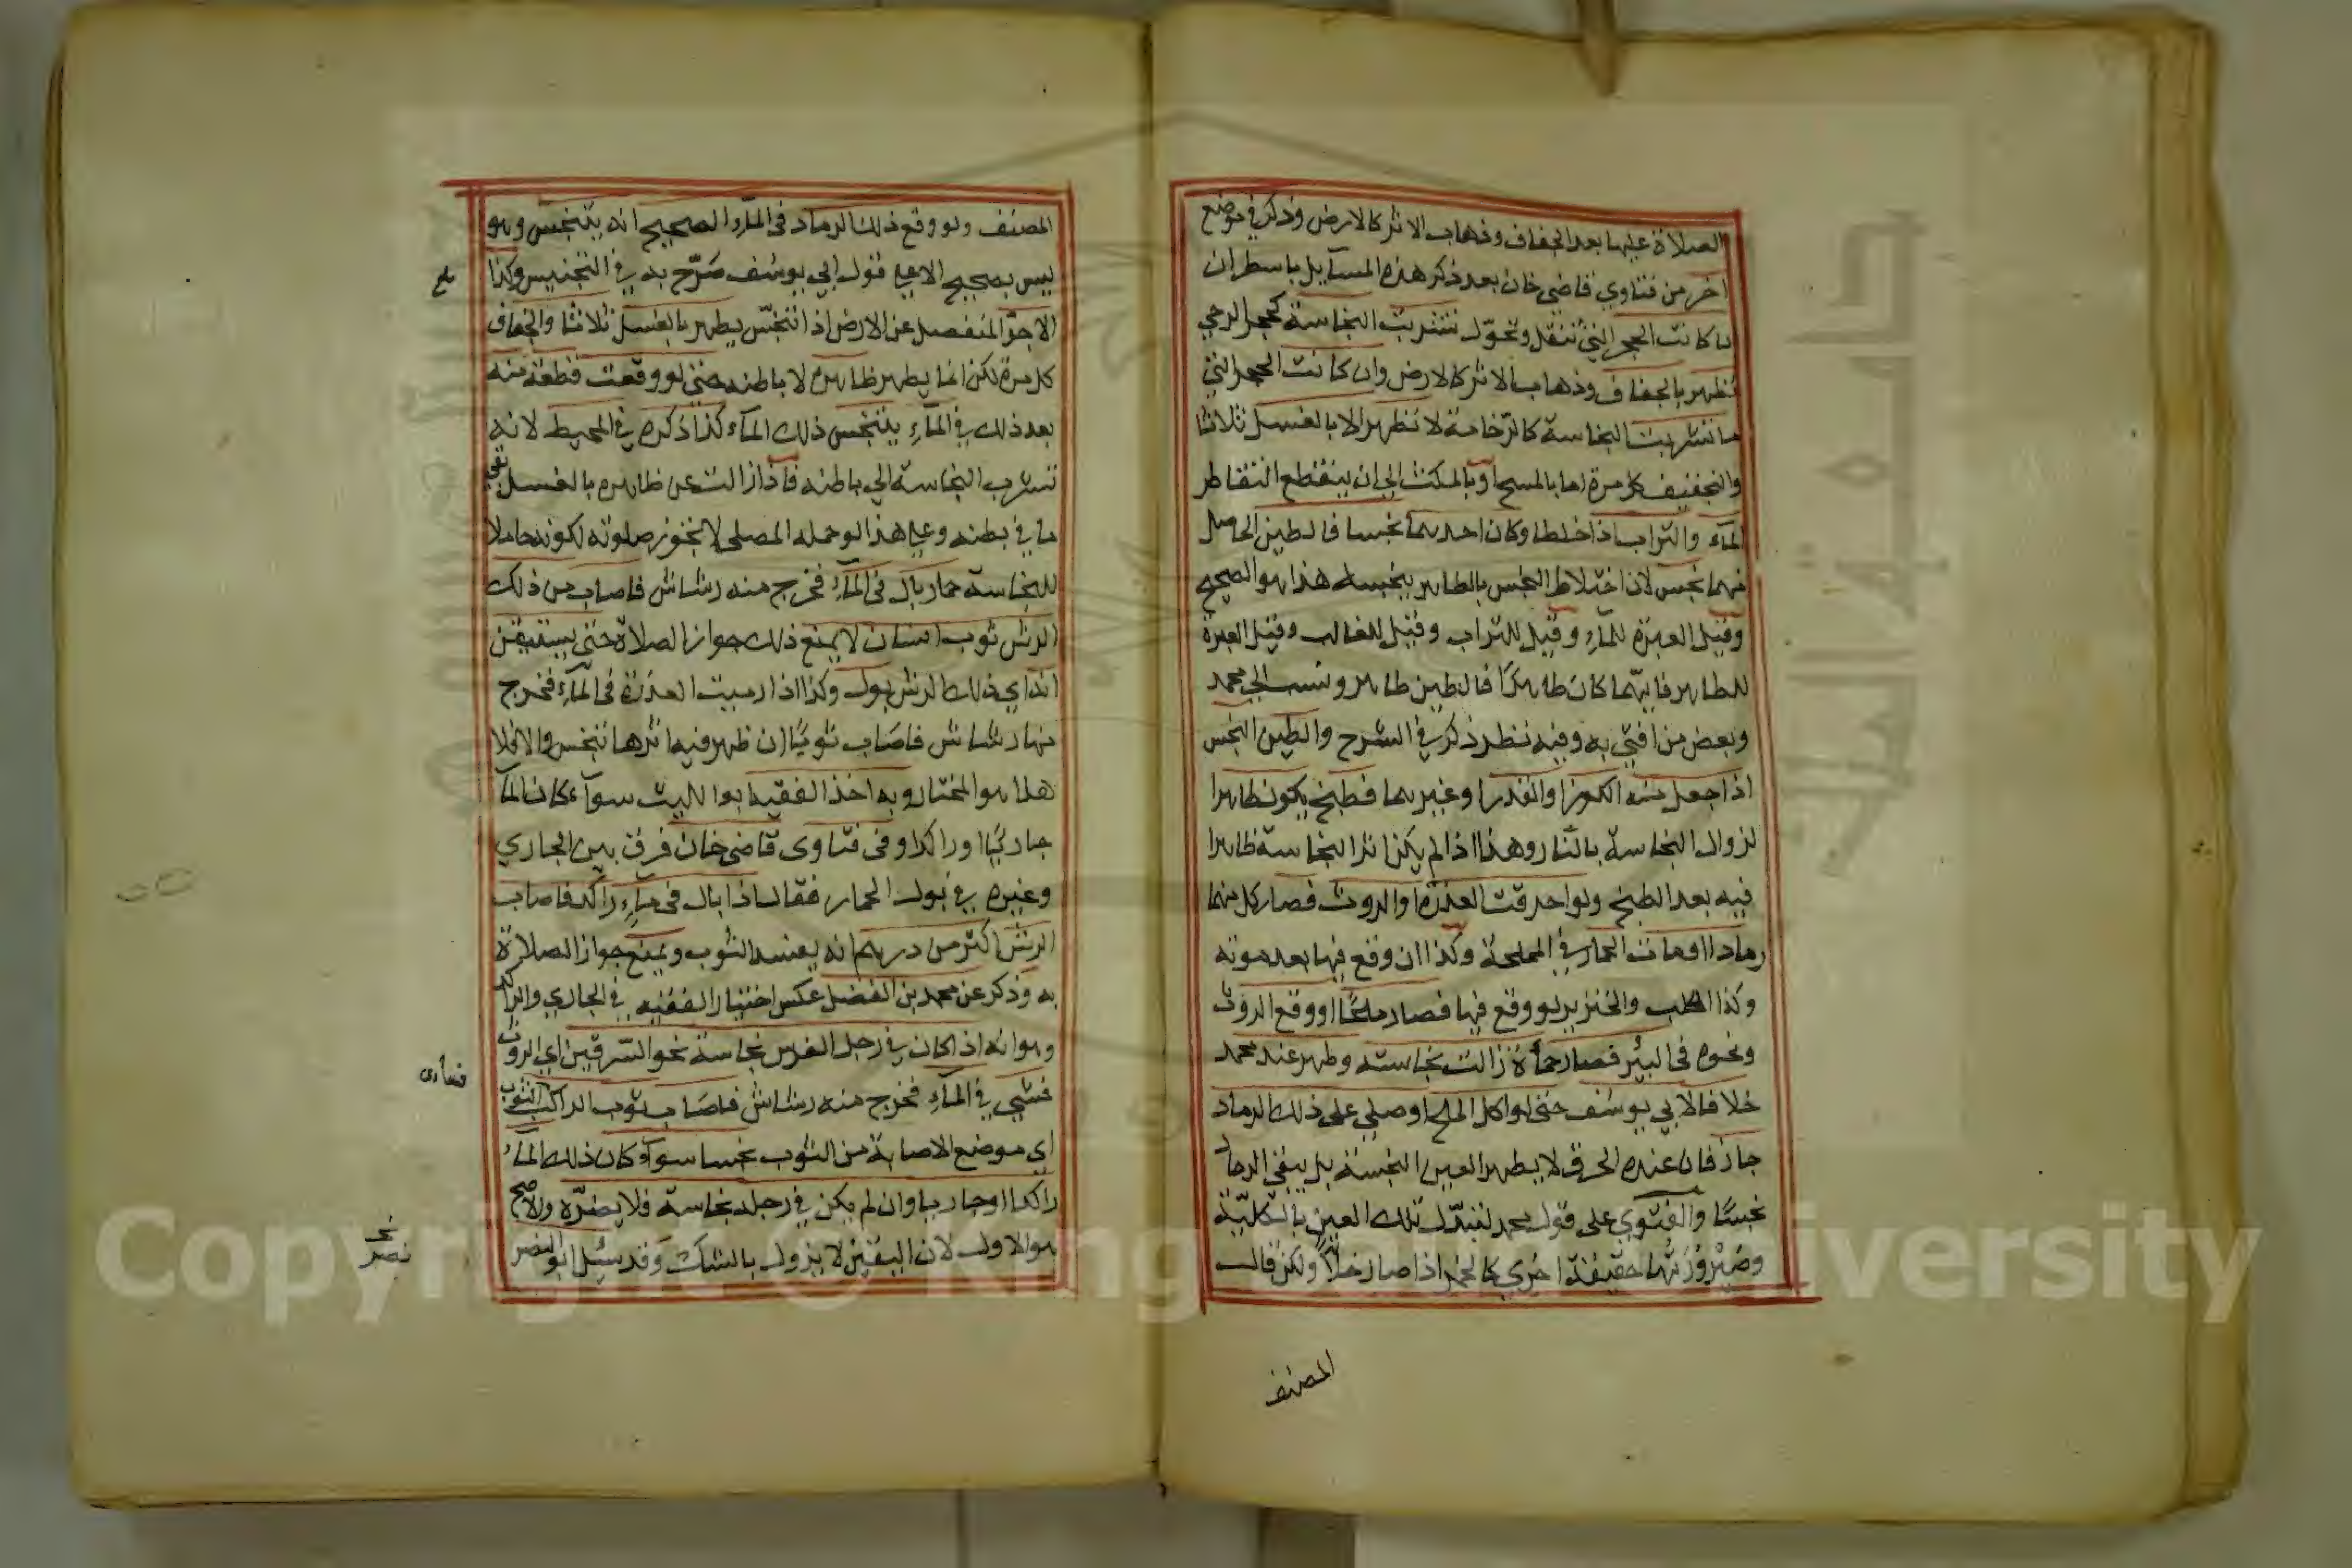 الصلاة عليها بعد الجفاف وذهاب الاثر كالارض وذكر في موضع
اخر من فتاوي قاضي خان بعد ذكر هذه المسايل باسطر ان
ما كانت الحجر التي تنقل وتحوّل تتشرب النجاسة كحجر الرحي
تطهر بالجفاف وذهاب الاثر كالارض وان كانت الحجر التي
ما تتشربت النجاسة كالرّخامة لا تطهر الا بالغسل ثلاثا
والتجفيف كل مرة اما بالمسح او بالمكث الي ان ينقطع التقاطر
المآء والتراب اذا خلطا وكان احدهما نجسا فالطين الحاصل
منهما نجس لان اختلاط النجس بالطاهر ينجسه هذا هو الصحيح
وقيل العبرة للمآء وقيل للتراب وقيل للغالب وقيل العبرة
للطاهر فايّهما كان طاهرًا فالطين طاهر ونسب الي محمد
وبعض من افتي به وفيه نظر ذكر في الشرح والطين النجس
اذا جعل منه الكوز او القدر او غيرهما فطبخ يكون طاهرا
لزوال النجاسة بالنّار وهذا اذا لم يكن اثر النجاسة ظاهرا
فيه بعد الطبخ ولو احرقت العذرة او الروث فصار كل منهما
رمادا او مات الحمار في المملحة وكذا ان وقع فيها بعد موته
وكذا الكلب والخنزير لو وقع فيها فصار ملحًا او وقع الروث
ونحوه في البئر فصار حمأة زالت نجاسته وطهر عند محمد
خلافا لابي يوسف حتى لو اكل الملح او صلي على ذلك الرماد
جاز فان عنده الحرق لا يطهر العين النجسة بل يبقي الرماد
نجسًا والفتوي على قول محمد لتبدّل تلك العين بالكليّة
وصَيْرُوْرَتِها حقيقة اخري كالخمر اذا صار خلاّ ولكن قال
المصنف
المصنف ولو وقع ذلك الرماد في المآء الصحيح انه يتنجس وهو
ليس بصحيح الا علي قول ابي يوسف صَرّح به في التجنيس وكذا
الاجرّ المنفصل عن الارض اذا تنجّس يطهر بالغسل ثلاثا والجفاف
كل مرة لكن انما يطهر ظاهره لا باطنه حتى لو وقعت قطعة منه
بعد ذلك في المآء يتنجس ذلك المآء كذا ذكره في المحيط لانه
تتشرب النجاسة الي باطنه فاذا زالت عن ظاهره بالغسل بقي
ما في بطنه وعلي هذا لو حمله المصلي لا تجوز صلوته لكونه حاملا
للنجاسة حمار بال في المآء فخرج منه رشاش فاصاب من ذلك
الرش ثوب انسان لا يمنع ذلك جواز الصلاة حتى يستيقن
انه اي ذلك الرش بول وكذا اذا رميت العذرة في المآء فخرج
منها رشاش فاصَاب ثوبًا ان ظهر فيه اثرها تنجس والا فلا
هذا هو المختار وبه اخذ الفقيه ابو الليث سوآء كان المآء
جاريًا او راكدا وفي فتاوى قاضي خان فرق بين الجاري
وغيره في بول الحمار فقال اذا بال في مآءٍ راكد فاصاب
الرش اكثر من درهم انه يفسد الثوب ويمنع جواز الصلاة
به وذكر عن محمد بن الفضل عكس اختيار الفقيه في الجاري والراكد
وهو انه اذا كان في رجل الفرس نجاسة نحو السّرقين اي الروث
فمشي في المآء فخرج منه رشاش فاصَاب ثوب الراكب الثوب
اى موضع الاصابة من الثوب نجسا سوآء كان ذلك المآء
راكدا او جاريا وان لم يكن في رجله نجاسة فلا يضرّه والاصح
هو الاول لان اليقين لا يزول بالشك وقد سئل ابو النصر
نصر
Copyright © King Saud University